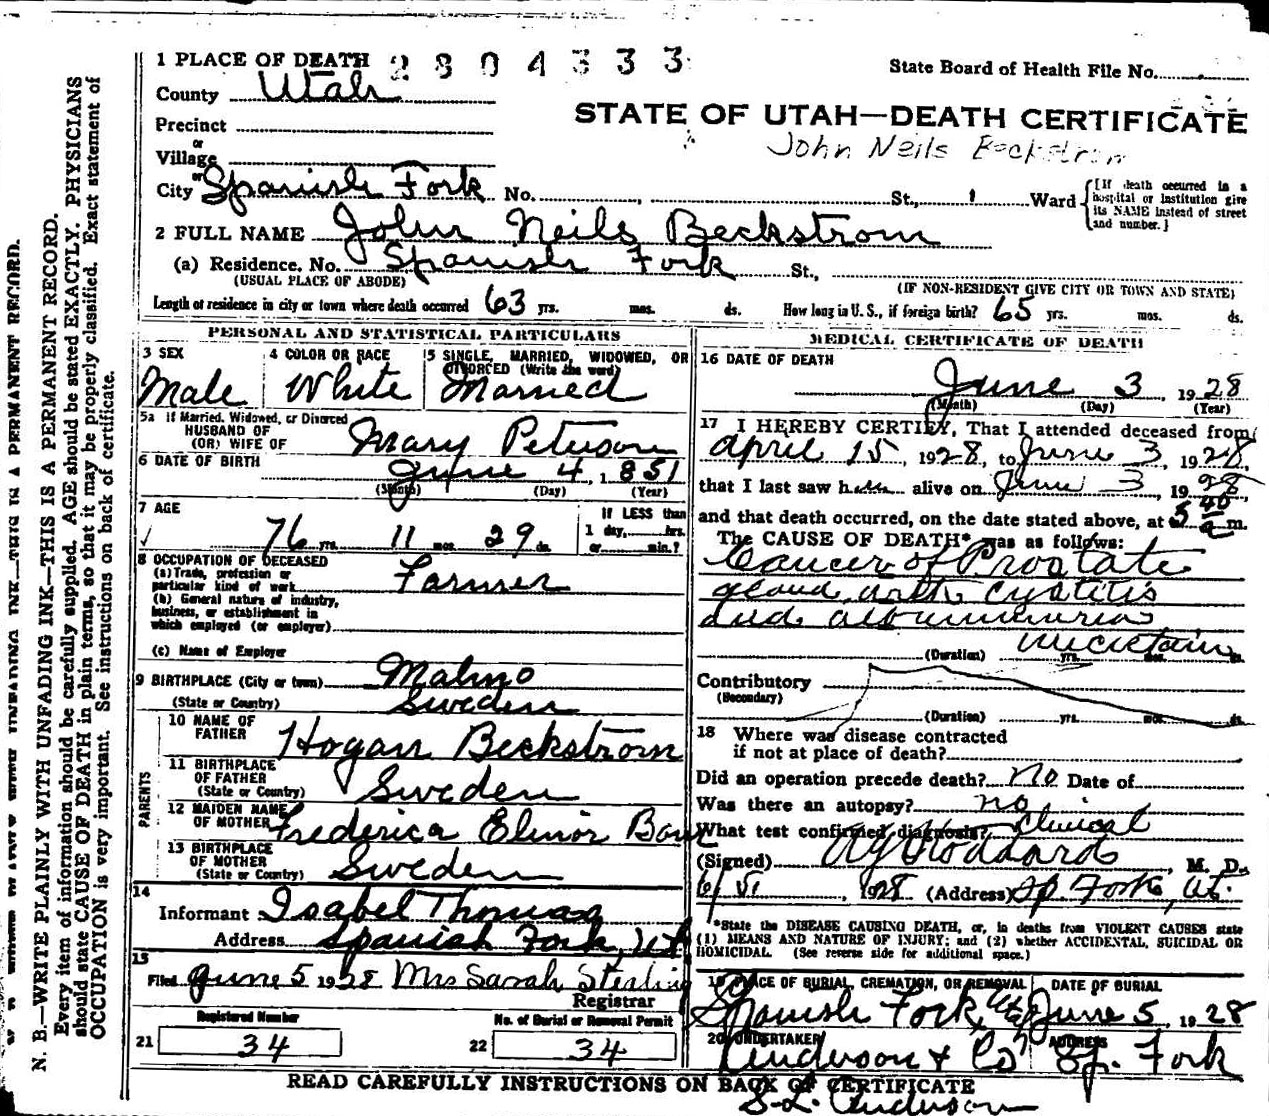 1 PLACE OF DEATH 2804333
State Board of Health File No.
County Utah
STATE OF UTAH—DEATH CERTIFICATE
Precinct
John Neils Beckstrom
or
Village
or
City Spanish Fork No. St., Ward
[If death occurred in a hospital or institution give its NAME instead of street and number.]
2 FULL NAME John Neils Beckstrom
(a) Residence. No. Spanish Fork St.,
(USUAL PLACE OF ABODE) (IF NON-RESIDENT GIVE CITY OR TOWN AND STATE)
Length of residence in city or town where death occurred 63 yrs. mos. ds. How long in U. S., if foreign birth? 65 yrs. mos. ds.
PERSONAL AND STATISTICAL PARTICULARS
3 SEX
Male
4 COLOR OR RACE
White
5 SINGLE, MARRIED, WIDOWED, OR
DIVORCED (Write the word)
Married
5a If Married, Widowed, or Divorced
HUSBAND OF
(OR) WIFE OF Mary Peterson
6 DATE OF BIRTH June 4, 1851
(Month) (Day) (Year)
7 AGE
76 yrs. 11 mos. 29 ds.
If LESS than
1 day, hrs.
or min.?
8 OCCUPATION OF DECEASED
(a) Trade, profession or
particular kind of work Farmer
(b) General nature of industry,
business, or establishment in
which employed (or employer)
(c) Name of Employer
9 BIRTHPLACE (City or town) Malmo
(State or Country) Sweden
PARENTS
10 NAME OF
FATHER Hogan Beckstrom
11 BIRTHPLACE
OF FATHER
(State or Country) Sweden
12 MAIDEN NAME
OF MOTHER Frederica Elinor
13 BIRTHPLACE
OF MOTHER
(State or Country) Sweden
14
Informant Isabel Thomas
Address Spanish Fork, Ut
15
Filed June 5 1928 Mrs Sarah Sterling
Registrar
Registered Number
21 34
No. of Burial or Removal Permit
22 34
MEDICAL CERTIFICATE OF DEATH
16 DATE OF DEATH
June 3 1928
(Month) (Day) (Year)
17 I HEREBY CERTIFY, That I attended deceased from
April 15, 1928, to June 3, 1928,
that I last saw him alive on June 3, 1928
and that death occurred, on the date stated above, at 5 40 a m.
The CAUSE OF DEATH* was as follows:
Cancer of Prostate
gland with Cystitis
and albuminuria
uncertain
(Duration) yrs. mos. ds.
Contributory
(Secondary)
(Duration) yrs. mos. ds.
18 Where was disease contracted
if not at place of death?
Did an operation precede death? no Date of
Was there an autopsy? no
What test confirmed diagnosis? Clinical
(Signed) A G Stoddard, M. D.
1928 (Address) Sp. Fork, Ut.
*State the DISEASE CAUSING DEATH, or, in deaths from VIOLENT CAUSES state
(1) MEANS AND NATURE OF INJURY; and (2) whether ACCIDENTAL, SUICIDAL OR
HOMICIDAL. (See reverse side for additional space.)
19 PLACE OF BURIAL, CREMATION, OR REMOVAL
Spanish Fork, Ut
DATE OF BURIAL
June 5, 1928
20 UNDERTAKER
Anderson & Co
ADDRESS
Sp. Fork
READ CAREFULLY INSTRUCTIONS ON BACK OF CERTIFICATE
S. L. Anderson
N. B.—WRITE PLAINLY WITH UNFADING INK—THIS IS A PERMANENT RECORD.
Every item of information should be carefully supplied. AGE should be stated EXACTLY. PHYSICIANS
should state CAUSE OF DEATH in plain terms, so that it may be properly classified. Exact statement of
OCCUPATION is very important. See instructions on back of certificate.